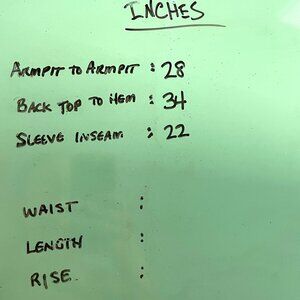 INCHES
ARMPIT TO ARMPIT : 28
BACK TOP TO HEM : 34
SLEEVE INSEAM : 22
WAIST :
LENGTH :
RISE :